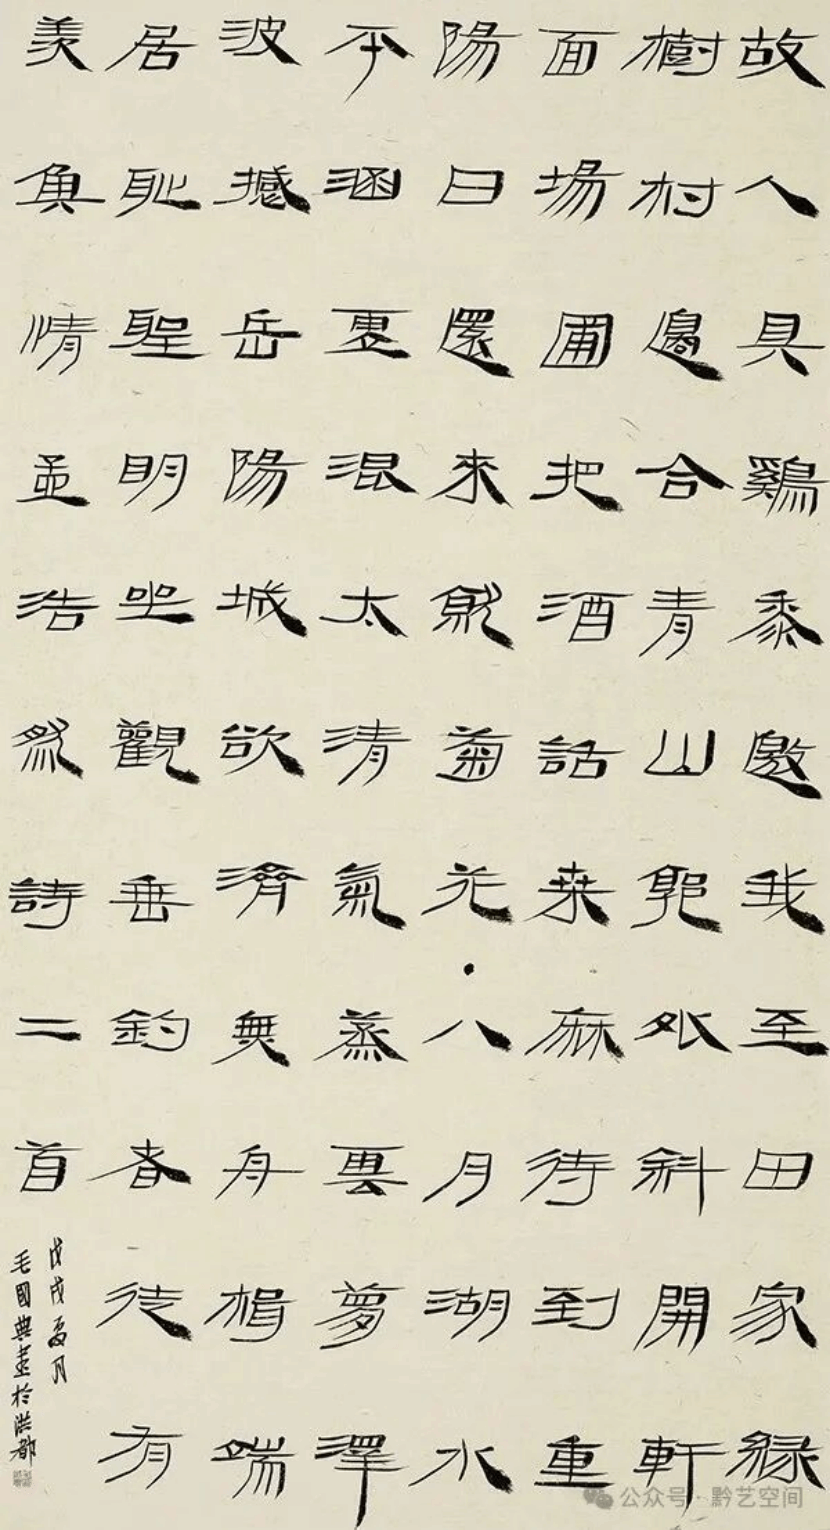 故人具鷄黍邀我至田家綠
樹村邊合青山郭外斜開軒
面場圃把酒話桑麻待到重
陽日還來就菊花·八月湖水
平涵虛混太清氣蒸雲夢澤
波撼岳陽城欲濟無舟楫端
居恥聖明坐觀垂釣者徒有
羨魚情孟浩然詩二首
戊戌夏月
毛國典書於洪都
公众号 · 黔艺空间